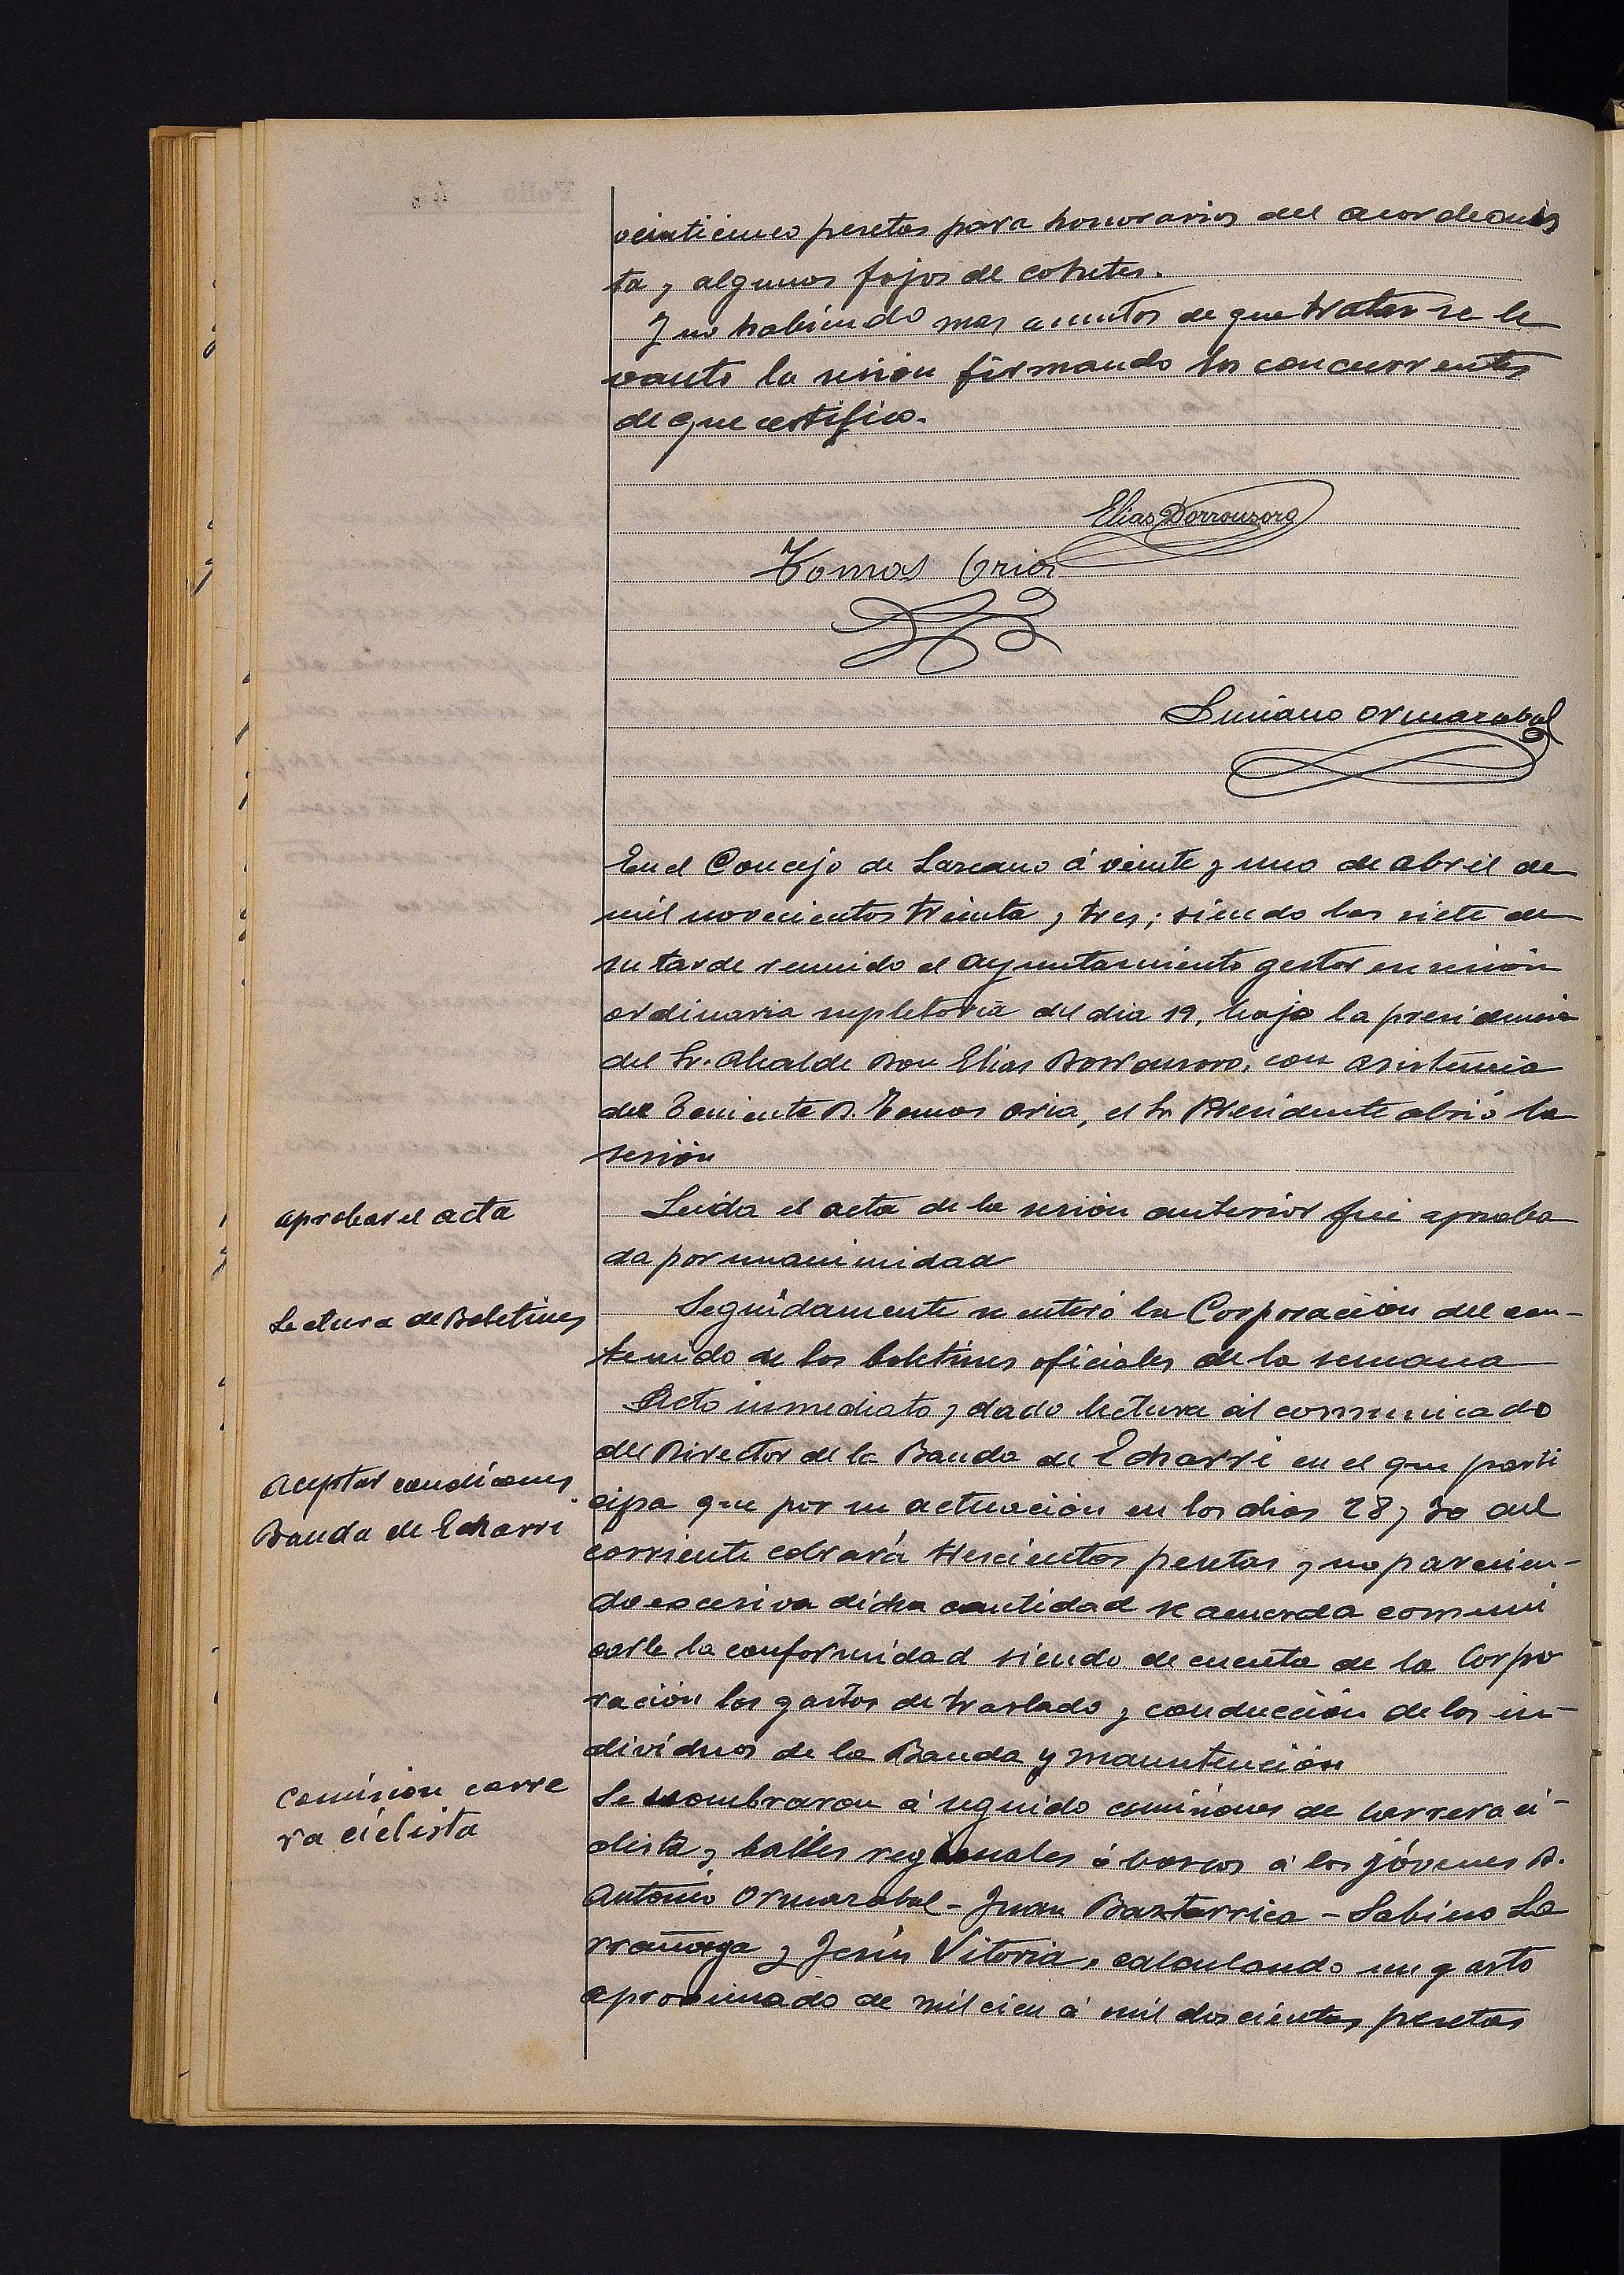 veinticinco pesetas para honorarios del acordeonis
ta y algunos fajos de cohetes.
Y no habiendo mas asuntos de que tratar se le
vantó la sesión firmando los concurrentes
de que certifico.
Elias Dorronsoro
Tomas Oria
Luciano Ormazabal
En el Concejo de Lazcano á veinte y uno de abril de
mil novecientos treinta y tres; siendo las siete de
su tarde reunido el ayuntamiento gestor en sesión
ordinaria supletoria del dia 19, bajo la presidencia
del Sr. Alcalde Don Elias Dorronsoro, con asistencia
del Teniente D. Tomas Oria, el Sr Presidente abrió la
sesión
aprobar el acta
Leida el acta de la sesión anterior fué aproba
da por unanimidad
Lectura de Boletines
Seguidamente se enteró la Corporación del con-
tenido de los boletines oficiales de la semana
Acto inmediato y dado lectura al comunicado
del Director de la Banda de Echarri en el que parti
Aceptar condiciones
Banda de Echarri
cipa que por su actuación en los dias 28 y 30 del
corriente cobrará trescientas pesetas y no parecien-
do excesiva dicha cantidad se acuerda comuni
carle la conformidad siendo de cuenta de la Corpo
ración los gastos de traslado y conducción de los in-
dividuos de la Banda y manutención
Comision carre
ra ciclista
Se nombraron á seguido comisiones de carrera ci-
clista y bailes regionales ó vascos á los jóvenes D.
Antonio Ormazabal - Juan Baztarrica - Sabino La
rrañaga y Jesús Vitoria, calculando un gasto
aproximado de mil cien á mil doscientas pesetas